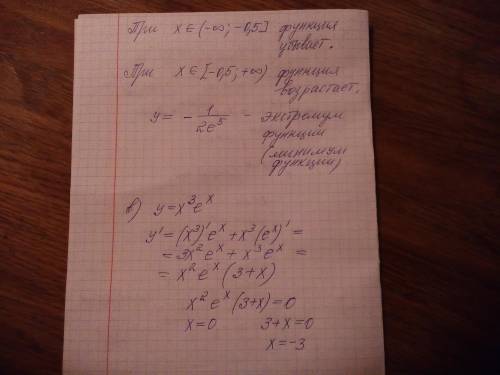 При x∈(-∞; -0,5] функция
убывает.
При x∈[-0,5; +∞) функция
возрастает.
y = - 1/(2e⁵) - экстремум
функции
(минимум
функции)
в) y = x³eˣ
y' = (x³)'eˣ + x³(eˣ)' =
= 3x²eˣ + x³eˣ =
= x²eˣ(3+x)
x²eˣ(3+x)=0
x=0 3+x=0
x=-3